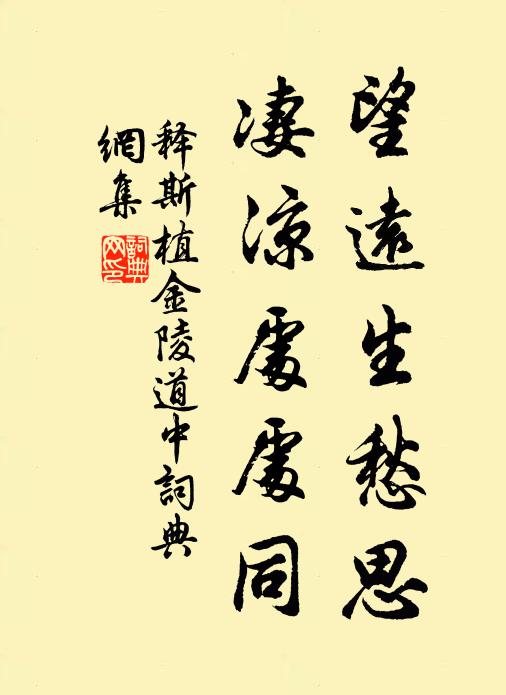 望遠生愁思
凄涼處處同
释斯植金陵道中詞典
網集
詞典
网印